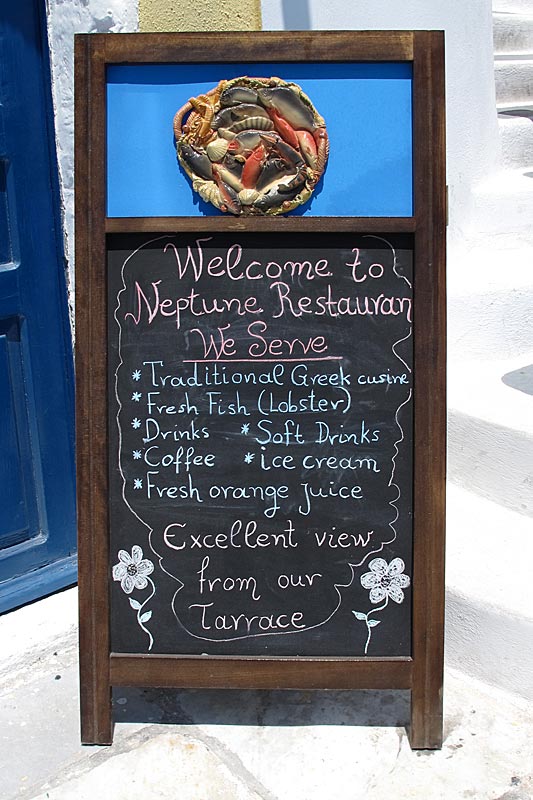 Welcome to
Neptune Restauran
We Serve
* Traditional Greek cusine
* Fresh Fish (Lobster)
* Drinks * Soft Drinks
* Coffee * ice cream
* Fresh orange juice
Excellent view
from our
Tarrace